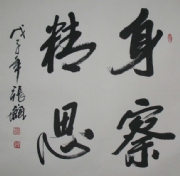 身察
精思
戊子年張顯